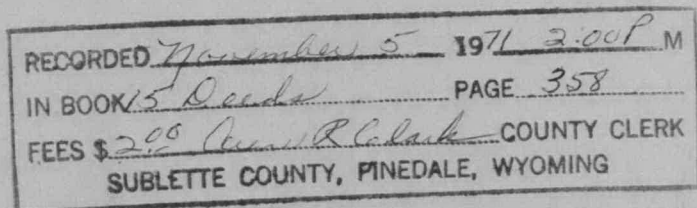 RECORDED November 5 1971 2:00 P M
IN BOOK 15 Deeds PAGE 358
FEES $ 2.00 R Clark COUNTY CLERK
SUBLETTE COUNTY, PINEDALE, WYOMING